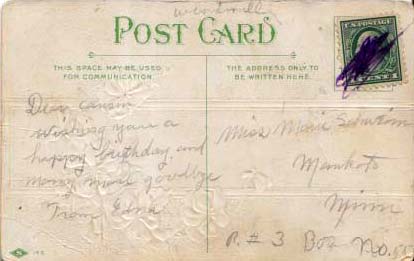 POST CARD
THIS SPACE MAY BE USED
FOR COMMUNICATION.
THE ADDRESS ONLY TO
BE WRITTEN HERE.
U.S. POSTAGE
CENT 1
Dear cousin
wishing you a
happy birthday and
many more goodbye
From Edna
Miss Marie
Mankato
Minn
R. # 3 Box No.